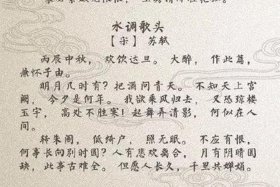 水调歌头
【宋】苏轼
丙辰中秋，欢饮达旦。大醉，作此篇，
兼怀子由。
明月几时有？把酒问青天。不知天上宫
阙，今夕是何年。我欲乘风归去，又恐琼楼
玉宇，高处不胜寒！起舞弄清影，何似在人
间。
转朱阁，低绮户，照无眠。不应有恨，
何事长向别时圆？人有悲欢离合，月有阴晴圆
缺，此事古难全。但愿人长久，千里共婵娟。